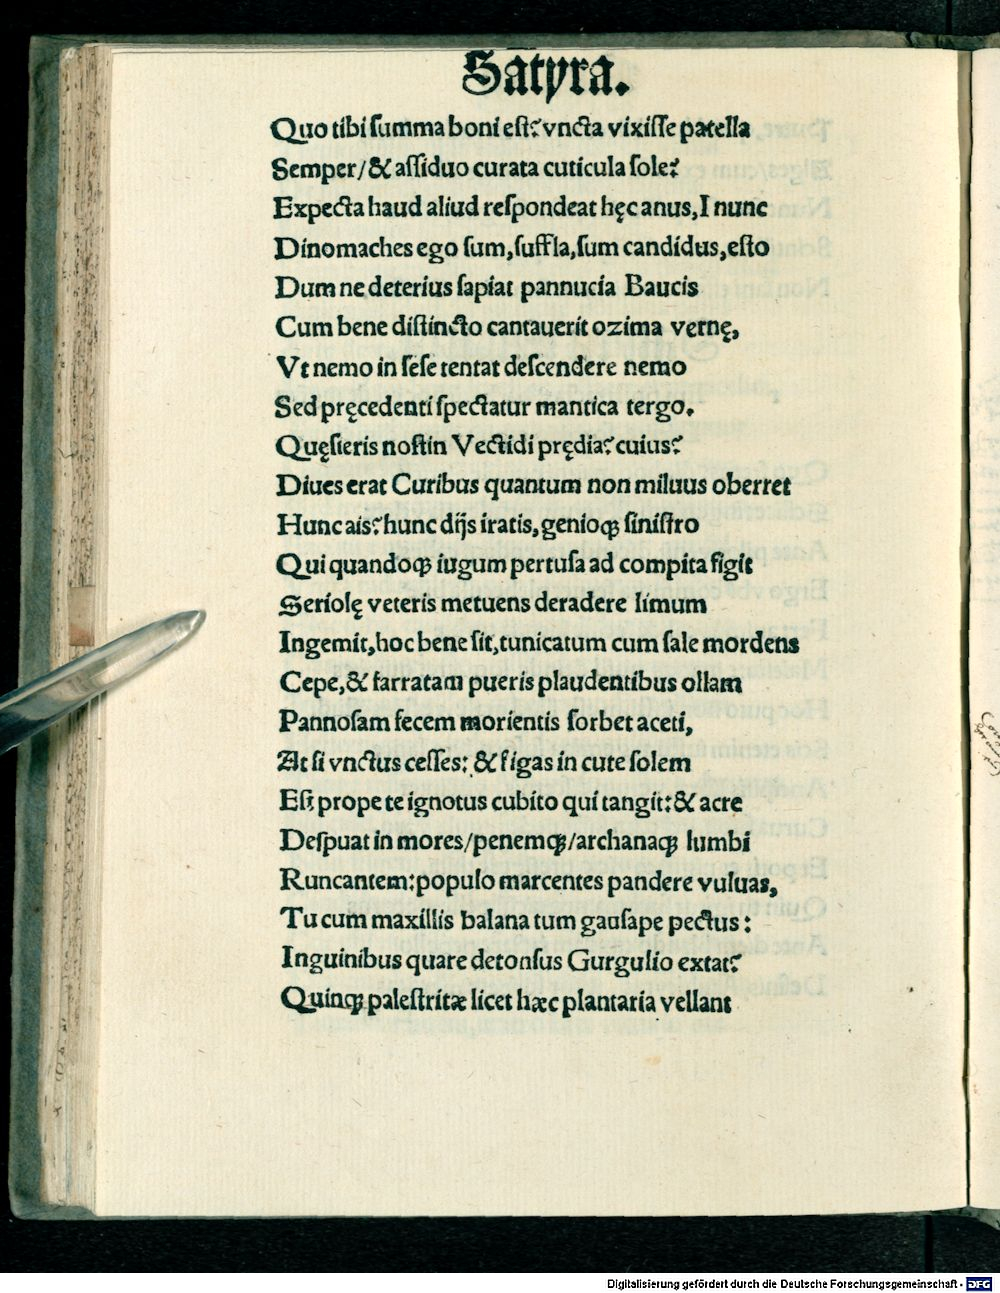 Satyra.
Quo tibi summa boni est? vncta vixisse patella
Semper/& assiduo curata cuticula sole?
Expecta haud aliud respondeat hęc anus, I nunc
Dinomaches ego sum, suffla, sum candidus, esto
Dum ne deterius sapiat pannucia Baucis
Cum bene distincto cantauerit ozima vernę,
Vt nemo in sese tentat descendere nemo
Sed pręcedenti spectatur mantica tergo.
Quęsieris nostin Vectidi prędia? cuius?
Diues erat Curibus quantum non miluus oberret
Hunc ais? hunc dijs iratis, genioqꝫ sinistro
Qui quandoqꝫ iugum pertusa ad compita figit
Seriolę veteris metuens deradere limum
Ingemit, hoc bene sit, tunicatum cum sale mordens
Cepe, & farratam pueris plaudentibus ollam
Pannosam fecem morientis sorbet aceti,
At si vnctus cesses: & figas in cute solem
Est prope te ignotus cubito qui tangit: & acre
Despuat in mores/penemqꝫ/archanaqꝫ lumbi
Runcantem: populo marcentes pandere vuluas,
Tu cum maxillis balana tum gausape pectus:
Inguinibus quare detonsus Gurgulio extat?
Quinqꝫ palestritæ licet hæc plantaria vellant
Digitalisierung gefördert durch die Deutsche Forschungsgemeinschaft - DFG